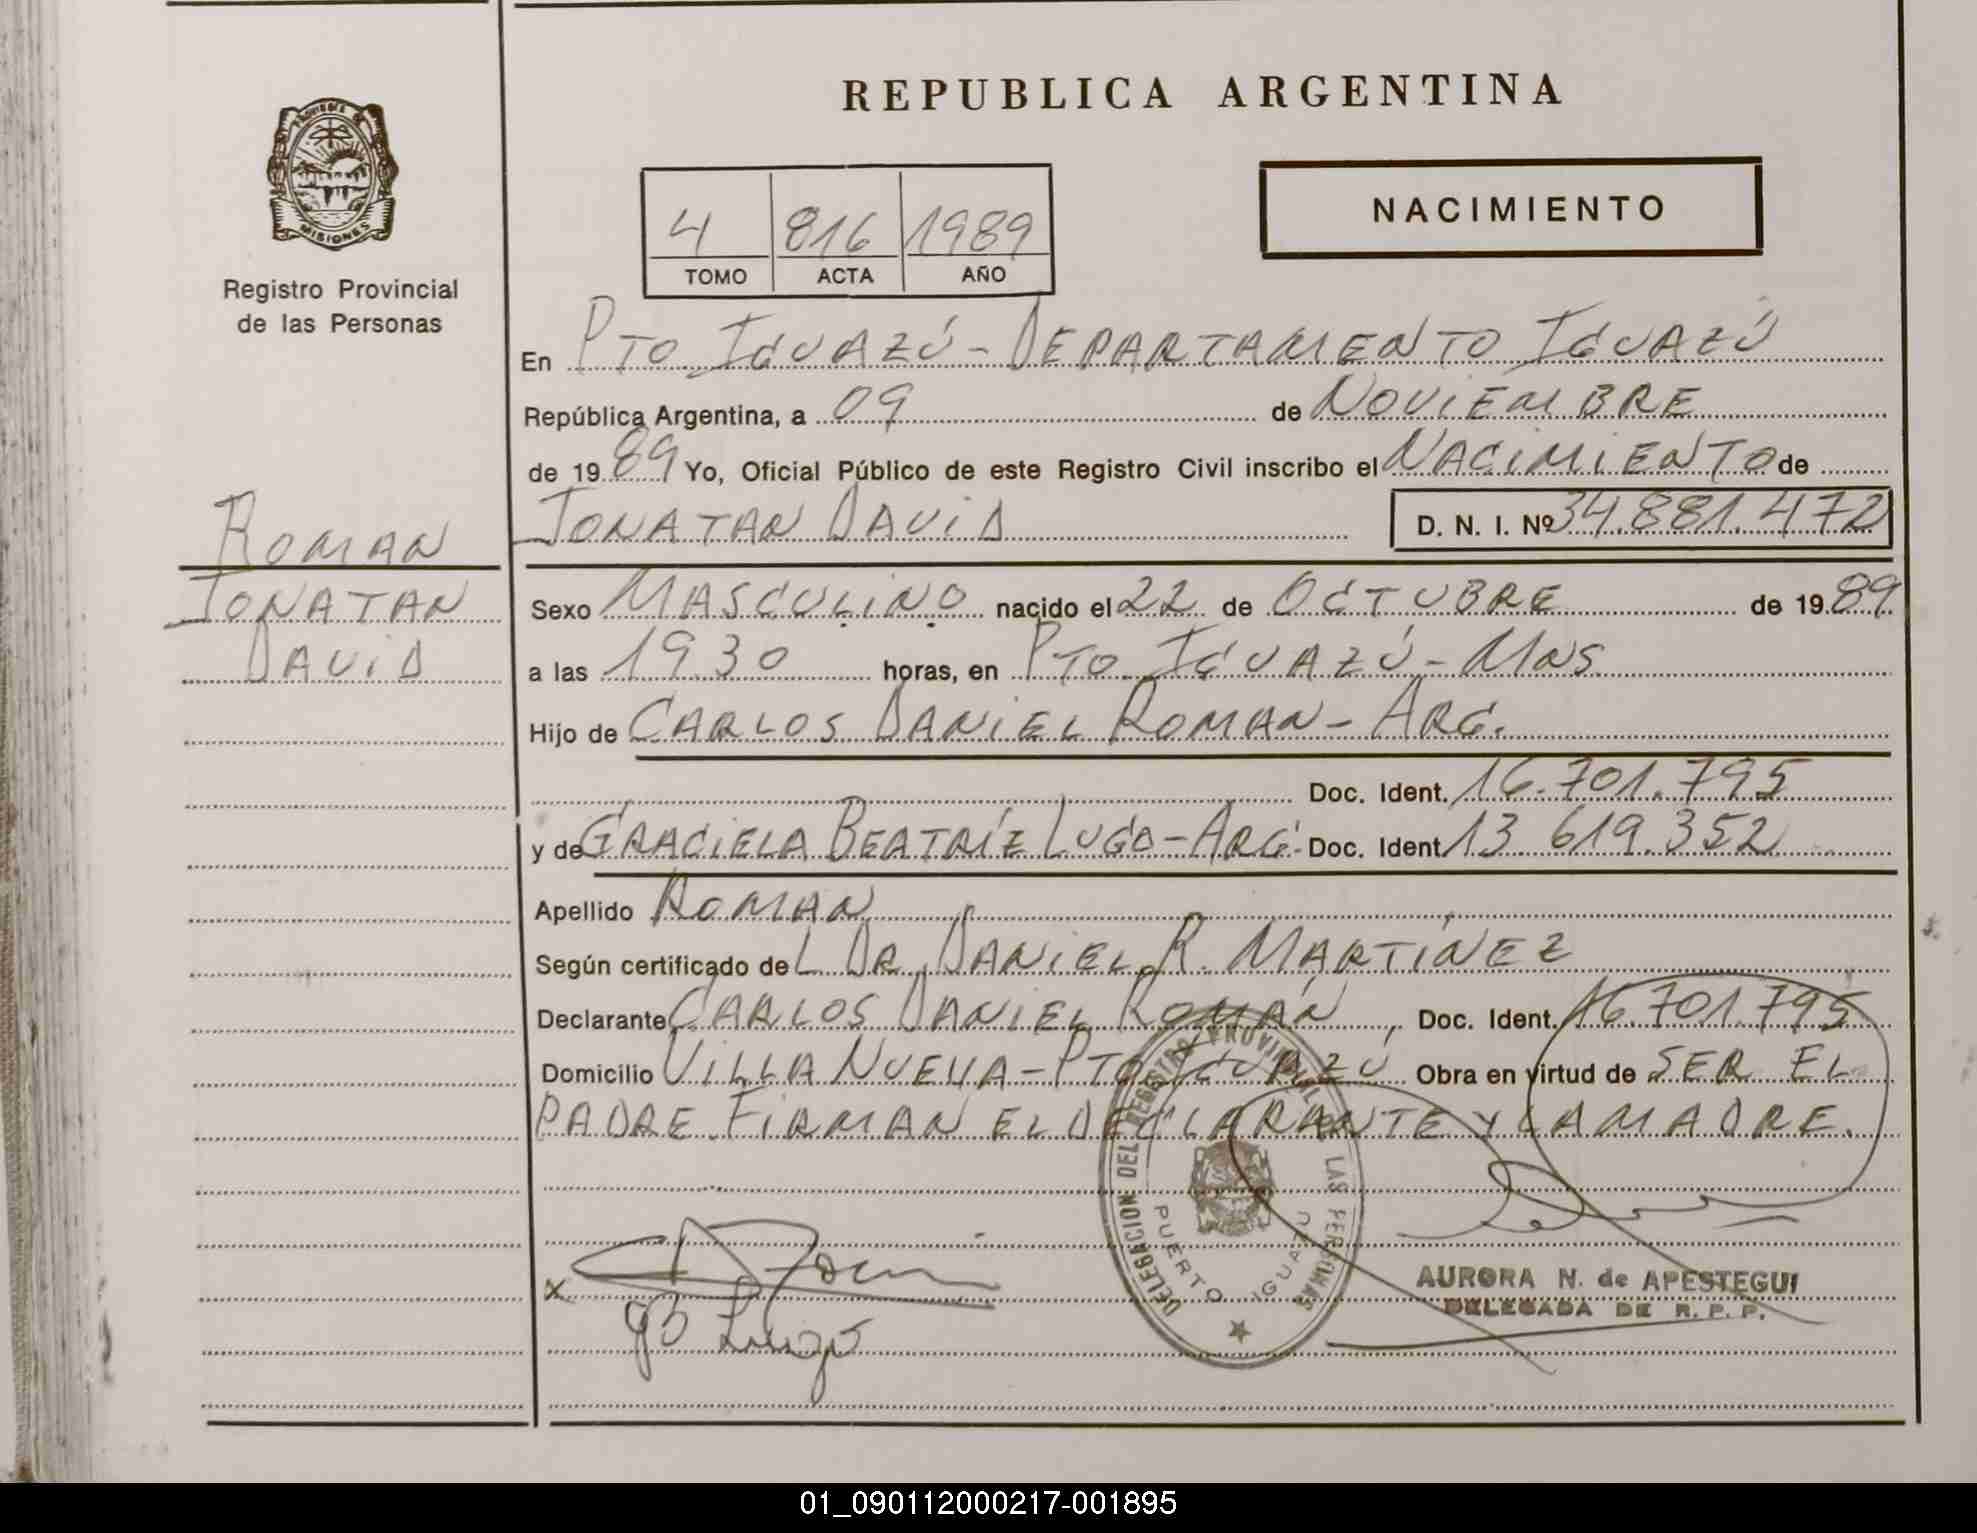 REPUBLICA ARGENTINA
PROVINCIA DE
MISIONES
Registro Provincial
de las Personas
4 816 1989
TOMO ACTA AÑO
NACIMIENTO
En PTO IGUAZÚ - DEPARTAMENTO IGUAZÚ
República Argentina, a 09 de NOVIEMBRE
de 1989 Yo, Oficial Público de este Registro Civil inscribo el NACIMIENTO de
JONATAN DAVID D. N. I. Nº 34.881.472
ROMAN
JONATAN
DAVID
Sexo MASCULINO nacido el 22 de OCTUBRE de 1989
a las 1930 horas, en PTO IGUAZÚ - MNS
Hijo de CARLOS DANIEL ROMAN - ARG.
Doc. Ident. 16.701.795
y de GRACIELA BEATRÍZ LUGO - ARG. Doc. Ident 13.619.352
Apellido ROMAN
Según certificado del DR. DANIEL R. MARTÍNEZ
Declarante CARLOS DANIEL ROMÁN, Doc. Ident. 16.701.795
Domicilio VILLA NUEVA - PTO IGUAZÚ Obra en virtud de SER EL
PADRE. FIRMAN EL DECLARANTE Y LA MADRE.
DELEGACION DEL REGISTRO PROVINCIAL DE LAS PERSONAS
PUERTO IGUAZU
X
gB Lugo
AURORA N. de APESTEGUI
DELEGADA DE R. P. P.
01_090112000217-001895